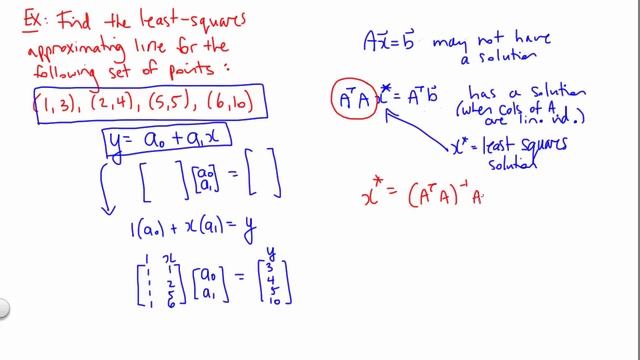 Ex: Find the least-squares
approximating line for the
following set of points:
(1,3), (2,4), (5,5), (6,10)
y = a₀ + a₁x
[ ] [a₀ a₁] = [ ]
1(a₀) + x(a₁) = y
1 x y
[1 1 [a₀ [3
1 2 a₁] = 4
1 5 5
1 6] 10]
Ax⃗ = b⃗ may not have
a solution
AᵀA x⃗* = Aᵀb⃗ has a solution
(when cols of A
are lin. ind.)
x* = least squares
solution
x* = (AᵀA)⁻¹ A